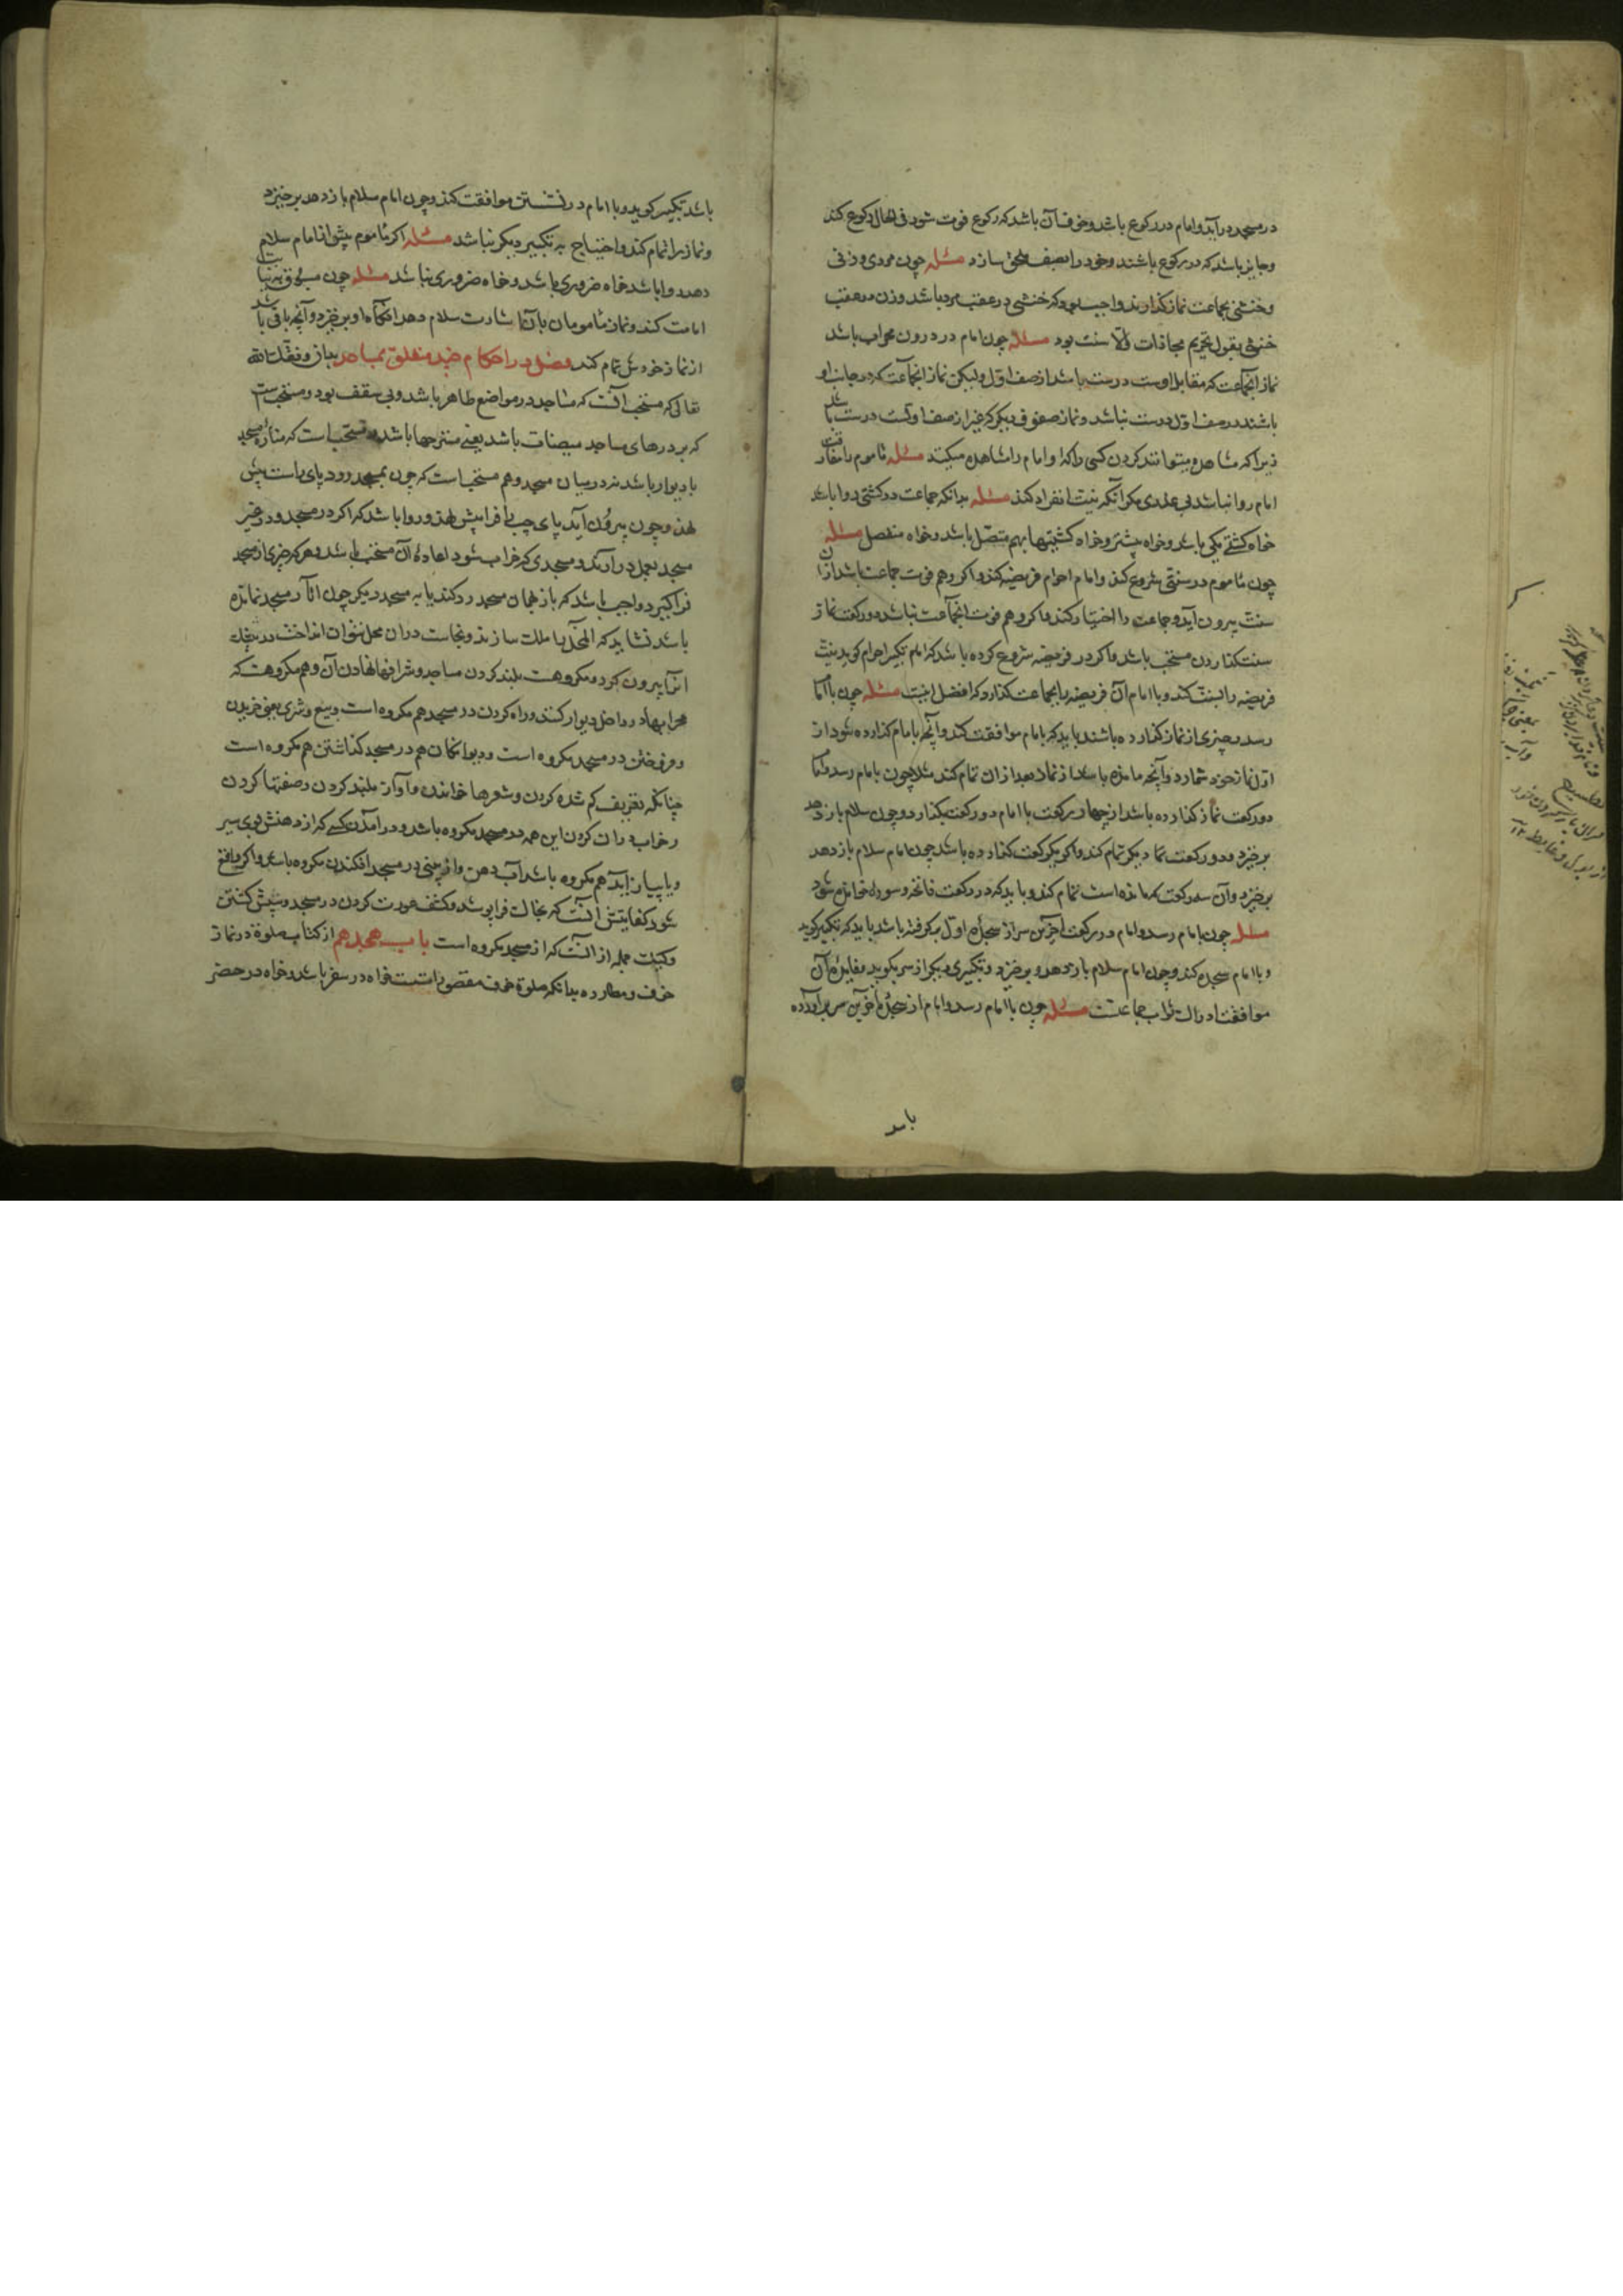 در مسجد درآید و امام در رکوع باشد و خوف آن باشد که رکوع فوت شود فی الحال رکوع کند
و جایز باشد که در رکوع باشند و خود را بصف ملحق سازد مسئله چون مردی و زنی
و خنثی بجماعت نماز گذارند واجب بود که خنثی در عقب مرد باشد و زن در عقب
خنثی بقول تحریم محاذات والا سنت بود مسئله چون امام در درون محراب باشد
نماز آنجماعت که مقابل اوست درست باشد از صف اول ولیکن نماز آنجماعت که در جانب او
باشند در صف اول درست نباشد و نماز صفوف دیگر که غیر از صف اولست درست باشد
زیرا که مشاهده میتوانند کردن کسی را که او امام را مشاهده میکند مسئله مأموم را مفارقت
امام روا نباشد بی عذری مگر آنکه نیت انفراد کند مسئله بدانکه جماعت در کشتی روا باشد
خواه کشتی یکی باشد و خواه بیشتر و خواه کشتیها بهم متصل باشد و خواه منفصل مسئله
چون مأموم در سنتی شروع کند و امام احرام فریضه کند و اگر وهم فوت جماعت باشد از آن
سنت بیرون آید و جماعت را اختیار کند و اگر وهم فوت آنجماعت نباشد دو رکعت نماز
سنت گذاردن مستحب باشد و اگر در فریضه شروع کرده باشد که امام تکبیر احرام گوید نیت
فریضه را بسنت کند و با امام آن فریضه را بجماعت گذارد که افضل اینست مسئله چون با امام
رسد و چیزی از نماز گذارده باشند باید که با امام موافقت کند و آنچه با امام گذارده شود از
اول نماز خود شمارد و آنچه مانده باشد از نماز بعد از آن تمام کند مثلا چون با امام رسد و امام
دو رکعت نماز گذارده باشد از چهار رکعت با امام دو رکعت بگذارد و چون سلام باز دهد
برخیزد و دو رکعت نماز دیگر تمام کند و اگر یکرکعت گذارده باشد چون امام سلام باز دهد
برخیزد و آن سه رکعت که مانده است تمام کند و باید که در رکعت فاتحه و سوره خوانده شود
مسئله چون با امام رسد و امام در رکعت آخرین سر از سجدهٔ اول برگرفته باشد باید که تکبیر گوید
و با امام سجده کند و چون امام سلام باز دهد و برخیزد و تکبیری دیگر از سر بگوید و فایدهٔ آن
موافقت دریافت ثواب جماعتست مسئله چون با امام رسد و امام از سجدهٔ آخرین سر برآورده
باشد
باشد تکبیر گوید و با امام در نشستن موافقت کند و چون امام سلام باز دهد برخیزد
و نماز را تمام کند و احتیاج به تکبیر دیگر نباشد مسئله اگر مأموم پیش از امام سلام
دهد روا باشد خواه ضروری باشد و خواه ضروری نباشد مسئله چون مسبوق به نیابت
امامت کند و نماز مأمومان بآن اشارت سلام دهد آنگاه او برخیزد و آنچه باقی باشد
از نماز خودش تمام کند فصل در احکام چند متعلق بمساجد بدان وفقک الله
تعالی که مستحب آنست که مساجد در مواضع ظاهر باشد و بی سقف بود و مستحبست
که بر درهای مساجد میضات باشد یعنی متبرجها باشد و مستحب است که منارهٔ مسجد
با دیوار باشد نه در میان مسجد و هم مستحب است که چون بمسجد رود پای راست پیش
نهد و چون بیرون آید پای چپ را فراپیش نهد و روا باشد که اگر در مسجد و در غیر
مسجد بعمل درآرند و مسجدی که خراب شود اعادهٔ آن مستحب باشد و هر که چیزی از مسجد
فراگیرد واجب باشد که باز همان مسجد رد کند یا به مسجد دیگر چون آثار مسجد نمانده
باشد نشاید که آن محل را ملک سازند و نجاست در آن محل نتوان انداخت
از آنجا بیرون کرد و مکروهست بلند کردن مساجد و شرافها نهادن آن و هم مکروهست که
محرابها در داخل دیوار کنند و راه کردن در مسجد هم مکروه است و بیع و شری یعنی خریدن
و فروختن در مسجد مکروه است و دیوانگان هم در مسجد گذاشتن هم مکروه است
چنانکه تعریف گم شده کردن و شعرها خواندن و آواز بلند کردن و صفتها کردن
و خواب در آن کردن این همه در مسجد مکروه باشد و درآمدن کسی که از دهنش بوی سیر
و یا پیاز آید هم مکروه باشد آب دهن و از بینی در مسجد افکندن مکروه باشد و اگر واقع
شود کفایتش آنست که بخاک فراپوشد و کشف عورت کردن در مسجد و شپش کشتن
جمله از آنست که از مسجد مکروه است باب هجدهم از کتاب صلوة در نماز
خوف و مطارده بدانکه صلوة خوف مقصور است خواه در سفر باشد و خواه در حضر